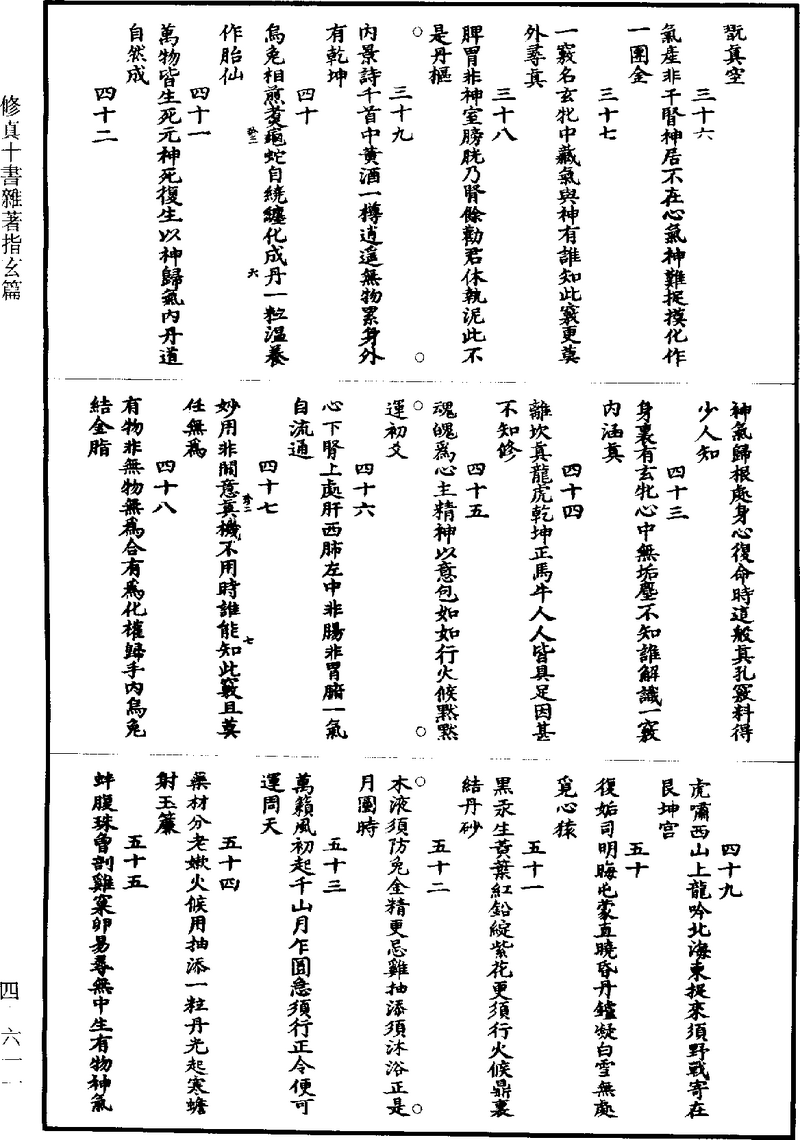 翫真空
三十六
氣產非干腎神居不在心氣神難捉摸化作
一團金
三十七
一竅名玄牝中藏氣與神有誰知此竅更莫
外尋真
三十八
脾胃非神室膀胱乃腎餘勸君休執泥此不
是丹樞
三十九
內景詩千首中黃酒一樽逍遥無物累身外
有乾坤
四十
烏兔相煎煮龜蛇自繞纏化成丹一粒溫養
作胎仙
四十一
萬物皆生死元神死復生以神歸氣內丹道
自然成
四十二
神氣歸根處身心復命時這般真孔竅料得
少人知
四十三
身裏有玄牝心中無垢塵不知誰解識一竅
內涵真
四十四
離坎真龍虎乾坤正馬牛人人皆具足因甚
不知修
四十五
魂魄為心主精神以意包如如行火候默默
運初爻
四十六
心下腎上處肝西肺左中非腸非胃腑一氣
自流通
四十七
妙用非關意真機不用時誰能知此竅且莫
任無為
四十八
有物非無物無為合有為化權歸手內烏兔
結金脂
四十九
虎嘯西山上龍吟北海東捉來須野戰寄在
艮坤宫
五十
復姤司明晦屯蒙直曉昏丹鑪凝白雪無處
覓心猿
五十一
黑汞生黃葉紅鉛綻紫花更須行火候鼎裏
結丹砂
五十二
木液須防兔金精更忌雞抽添須沐浴正是
月圓時
五十三
萬籟風初起千山月乍圓急須行正令便可
運周天
五十四
藥材分老嫩火候用抽添一粒丹光起寒蟾
射玉簾
五十五
蚌腹珠曾剖雞窠卵易尋無中生有物神氣
修真十書雜著指玄篇
四
六一一